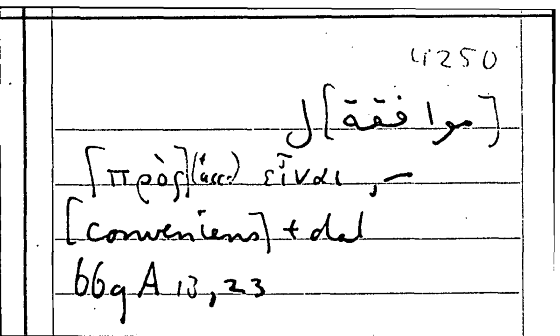 4250
[موافقة] ل
[πρὸς] (+ acc.) εἶναι, –
[conveniens] + dat
669 A 13, 23